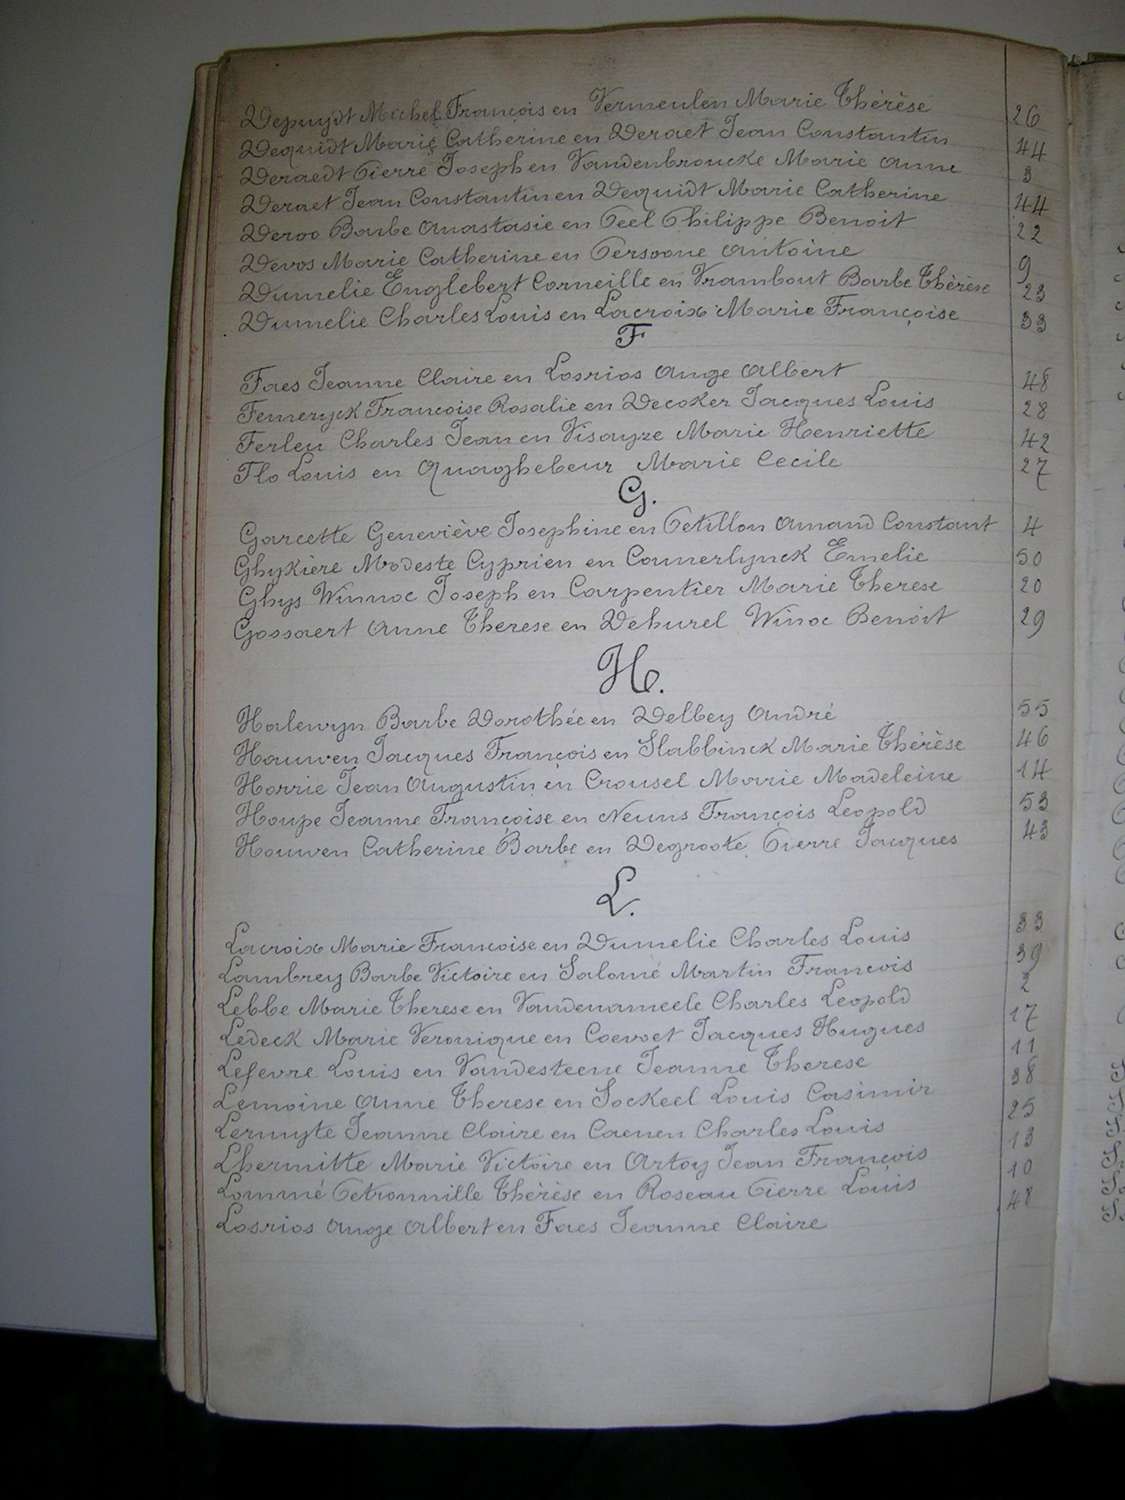 Depuydt Michel François en Vermeulen Marie Thérèse 26
Dequidt Marie Catherine en Deraet Jean Constantin 44
Deraedt Pierre Joseph en Vandenbroucke Marie Anne 3
Deraet Jean Constantin en Dequidt Marie Catherine 44
Deroo Barbe Anastasie en Peel Philippe Benoit 22
Devos Marie Catherine en Persoone Antoine 9
Dumelie Englebert Corneille en Vrambout Barbe Thérèse 23
Dumelie Charles Louis en Lacroix Marie Françoise 33
F
Faes Jeanne Claire en Losrios Ange Albert 48
Femeryck Francoise Rosalie en Decoker Jacques Louis 28
Ferleu Charles Jean en Visayze Marie Henriette 42
Flo Louis en Quaghebeur Marie Cecile 27
G.
Garcette Geneviève Josephine en Petillon Amand Constant 4
Ghykière Modeste Cyprien en Counerlynck Emelie 50
Ghys Winnoc Joseph en Carpentier Marie Therese 20
Gossaert Anne Therese en Dehurel Winoc Benoit 29
H.
Halewyn Barbe Dorothée en Delbey André 55
Houwen Jacques François en Slabbinck Marie Thérèse 46
Horrie Jean Augustin en Crousel Marie Madeleine 14
Houpe Jeanne Françoise en Neuns François Leopold 53
Houwen Catherine Barbe en Degroote Pierre Jacques 43
L.
Lacroix Marie Francoise en Dumelie Charles Louis 33
Lambrey Barbe Victoire en Salomé Martin Francois 39
Lebbe Marie Therese en Vandenameele Charles Leopold 2
Ledeck Marie Veronique en Coevoet Jacques Hugues 17
Lefevre Louis en Vandesteene Jeanne Therese 11
Lemoine Anne Therese en Sockeel Louis Casimir 38
Lermyte Jeanne Claire en Caenen Charles Louis 25
Lhermitte Marie Victoire en Artoy Jean François 13
Lommé Petronnille Thérèse en Roseau Pierre Louis 10
Losrios Ange Albert en Faes Jeanne Claire 48